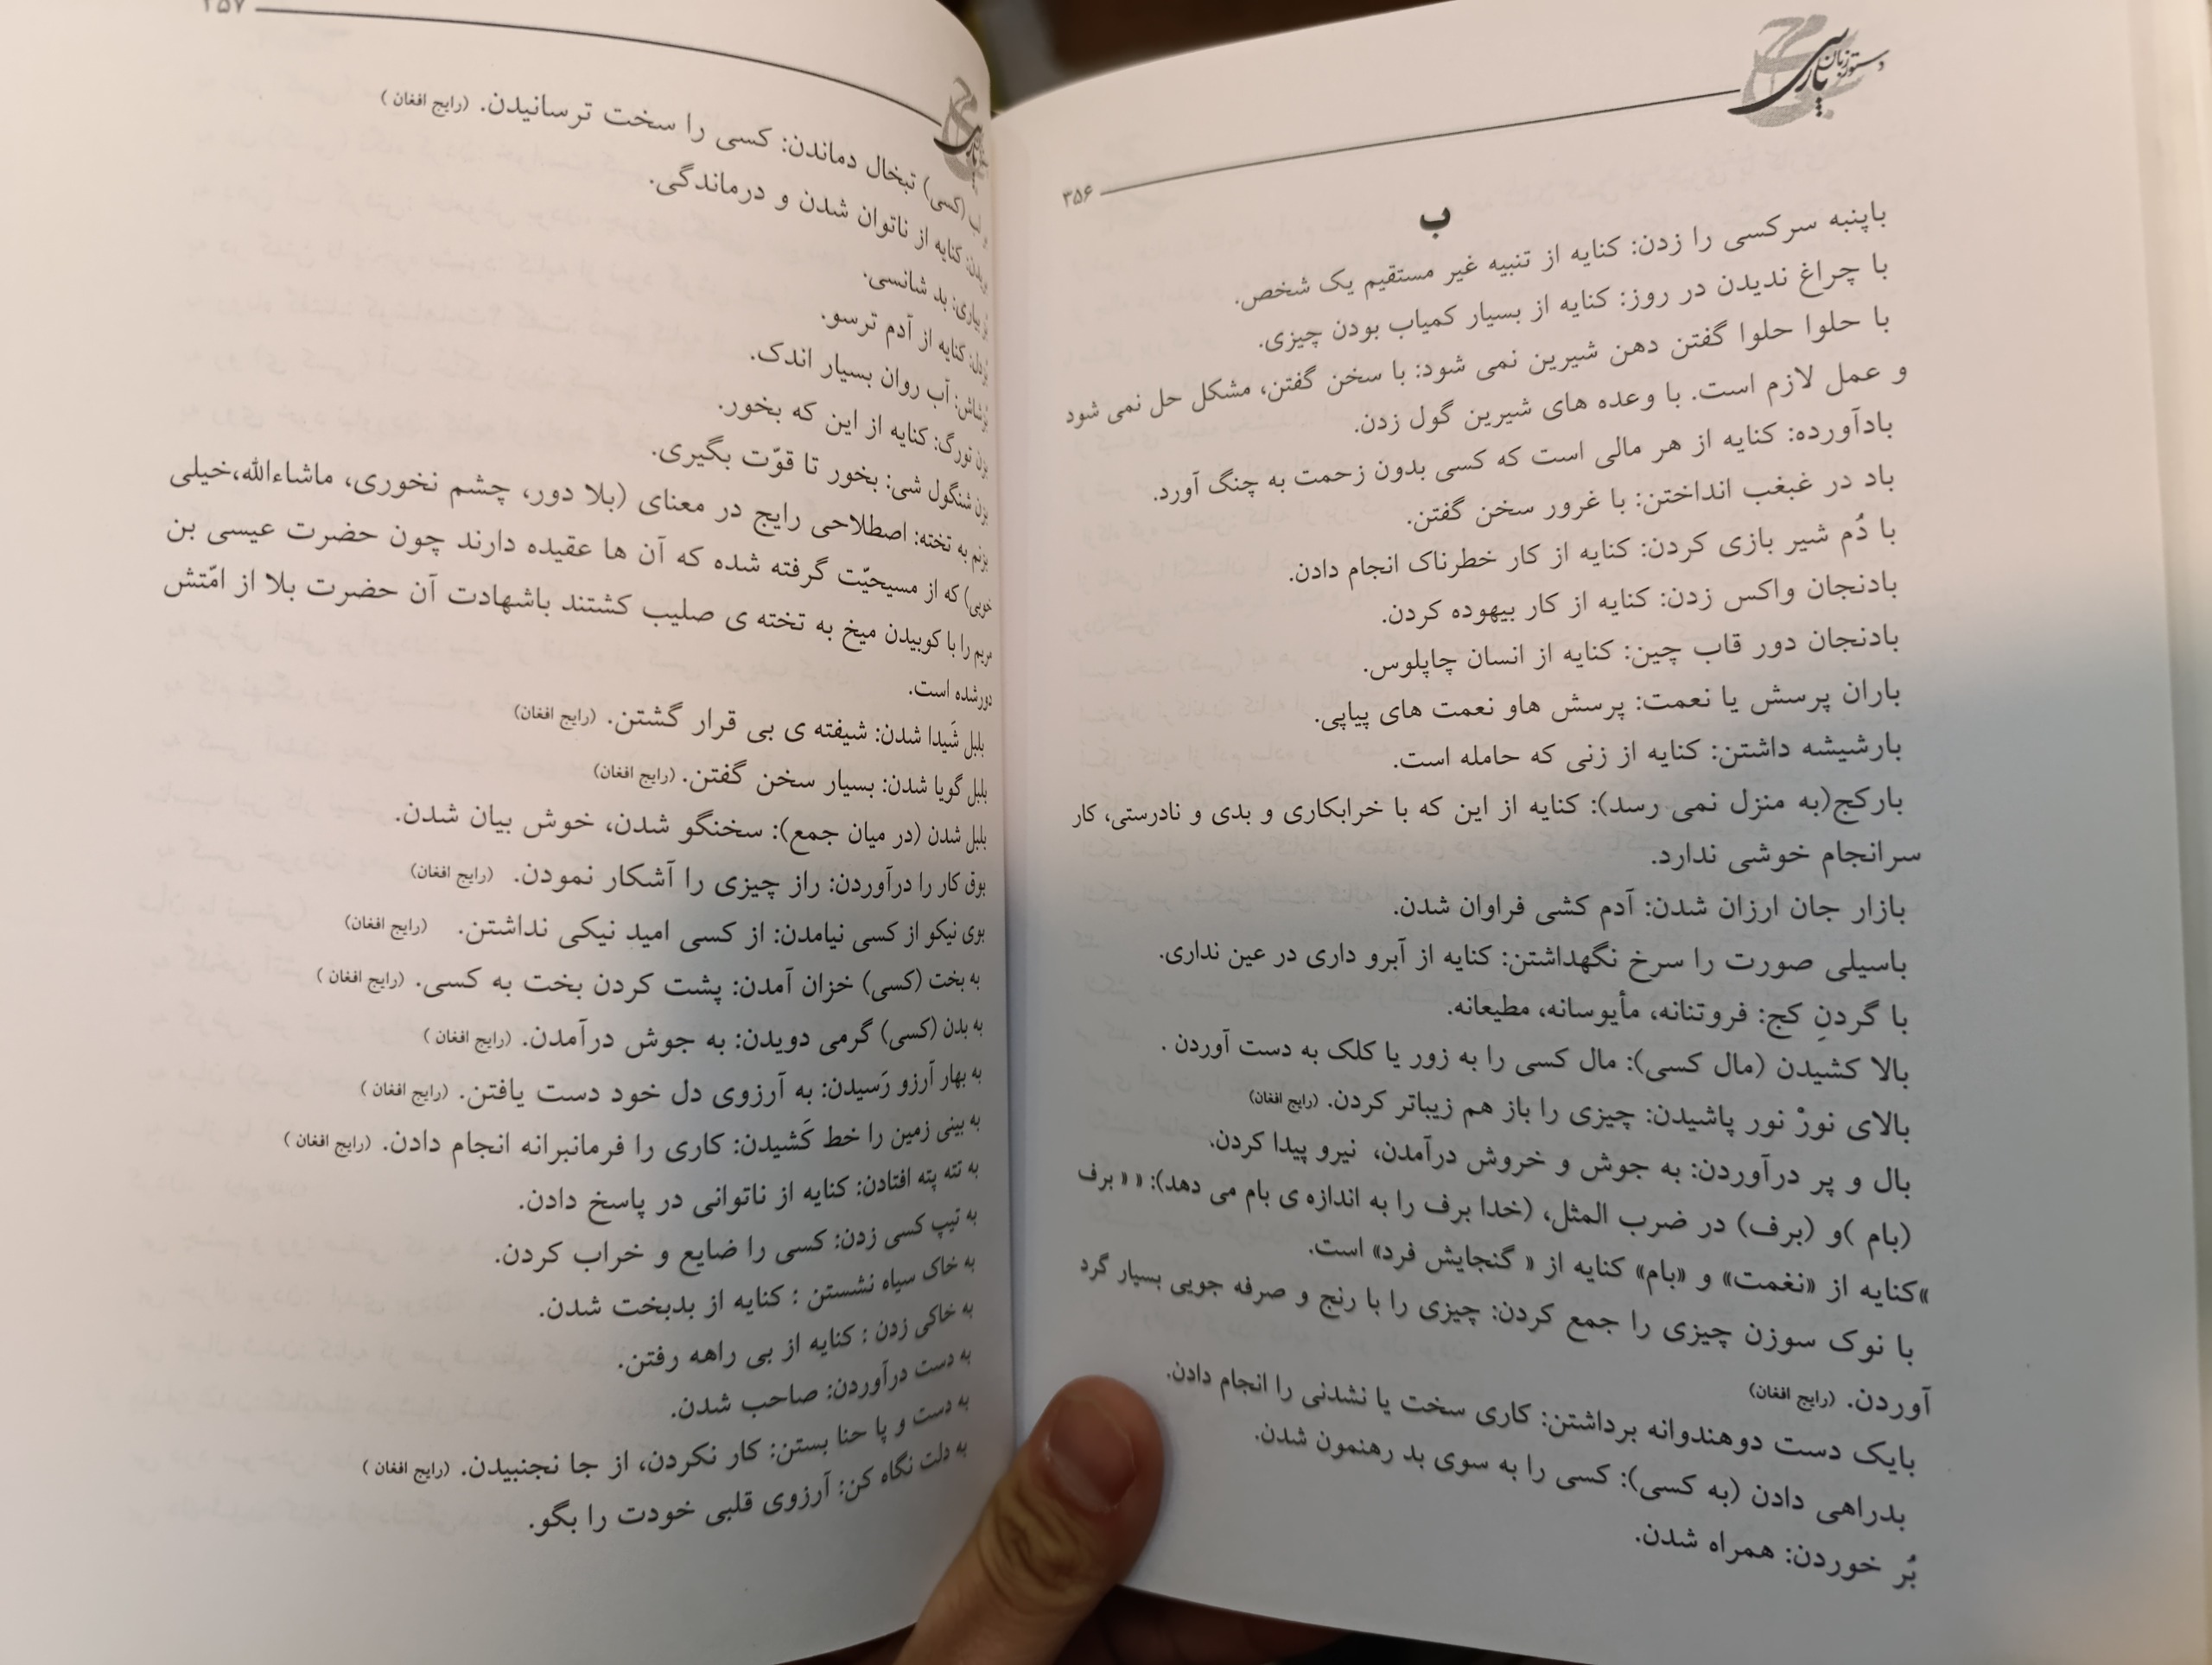 دستور زبان پارسی
۳۵۶
ب
باپنبه سرکسی را زدن: کنایه از تنبیه غیر مستقیم یک شخص.
با چراغ ندیدن در روز: کنایه از بسیار کمیاب بودن چیزی.
با حلوا حلوا گفتن دهن شیرین نمی شود: با سخن گفتن، مشکل حل نمی شود
و عمل لازم است. با وعده های شیرین گول زدن.
بادآورده: کنایه از هر مالی است که کسی بدون زحمت به چنگ آورد.
باد در غبغب انداختن: با غرور سخن گفتن.
با دُم شیر بازی کردن: کنایه از کار خطرناک انجام دادن.
بادنجان واکس زدن: کنایه از کار بیهوده کردن.
بادنجان دور قاب چین: کنایه از انسان چاپلوس.
باران پرسش یا نعمت: پرسش هاو نعمت های پیاپی.
بارشیشه داشتن: کنایه از زنی که حامله است.
بارکج(به منزل نمی رسد): کنایه از این که با خرابکاری و بدی و نادرستی، کار
سرانجام خوشی ندارد.
بازار جان ارزان شدن: آدم کشی فراوان شدن.
باسیلی صورت را سرخ نگهداشتن: کنایه از آبرو داری در عین نداری.
با گردنِ کج: فروتنانه، مأیوسانه، مطیعانه.
بالا کشیدن (مال کسی): مال کسی را به زور یا کلک به دست آوردن .
بالای نورْ نور پاشیدن: چیزی را باز هم زیباتر کردن. (رایج افغان)
بال و پر درآوردن: به جوش و خروش درآمدن، نیرو پیدا کردن.
(بام )و (برف) در ضرب المثل، (خدا برف را به اندازه ی بام می دهد): « « برف
»کنایه از «نغمت» و «بام» کنایه از « گنجایش فرد» است.
با نوک سوزن چیزی را جمع کردن: چیزی را با رنج و صرفه جویی بسیار گرد
آوردن. (رایج افغان)
بایک دست دوهندوانه برداشتن: کاری سخت یا نشدنی را انجام دادن.
بدراهی دادن (به کسی): کسی را به سوی بد رهنمون شدن.
بُر خوردن: همراه شدن.
۳۵۷
لب (کسی) تبخال دماندن: کسی را سخت ترسانیدن. (رایج افغان )
کنایه از ناتوان شدن و درماندگی.
بیاری: بد شانسی.
کنایه از آدم ترسو.
آب روان بسیار اندک.
بزن تورگ: کنایه از این که بخور.
بزن شنگول شی: بخور تا قوّت بگیری.
بزنم به تخته: اصطلاحی رایج در معنای (بلا دور، چشم نخوری، ماشاءالله،خیلی
خوبی) که از مسیحیّت گرفته شده که آن ها عقیده دارند چون حضرت عیسی بن
مریم را با کوبیدن میخ به تخته ی صلیب کشتند باشهادت آن حضرت بلا از امّتش
دورشده است.
بلبل شَیدا شدن: شیفته ی بی قرار گشتن. (رایج افغان)
بلبل گویا شدن: بسیار سخن گفتن. (رایج افغان)
بلبل شدن (در میان جمع): سخنگو شدن، خوش بیان شدن.
بوق کار را درآوردن: راز چیزی را آشکار نمودن. (رایج افغان)
بوی نیکو از کسی نیامدن: از کسی امید نیکی نداشتن. (رایج افغان)
به بخت (کسی) خزان آمدن: پشت کردن بخت به کسی. (رایج افغان )
به بدن (کسی) گرمی دویدن: به جوش درآمدن. (رایج افغان )
به بهار آرزو رَسیدن: به آرزوی دل خود دست یافتن. (رایج افغان )
به بینی زمین را خط کَشیدن: کاری را فرمانبرانه انجام دادن. (رایج افغان )
به تته پته افتادن: کنایه از ناتوانی در پاسخ دادن.
به تیپ کسی زدن: کسی را ضایع و خراب کردن.
به خاک سیاه نشستن : کنایه از بدبخت شدن.
به خاکی زدن : کنایه از بی راهه رفتن.
به دست درآوردن: صاحب شدن.
به دست و پا حنا بستن: کار نکردن، از جا نجنبیدن. (رایج افغان )
به دلت نگاه کن: آرزوی قلبی خودت را بگو.